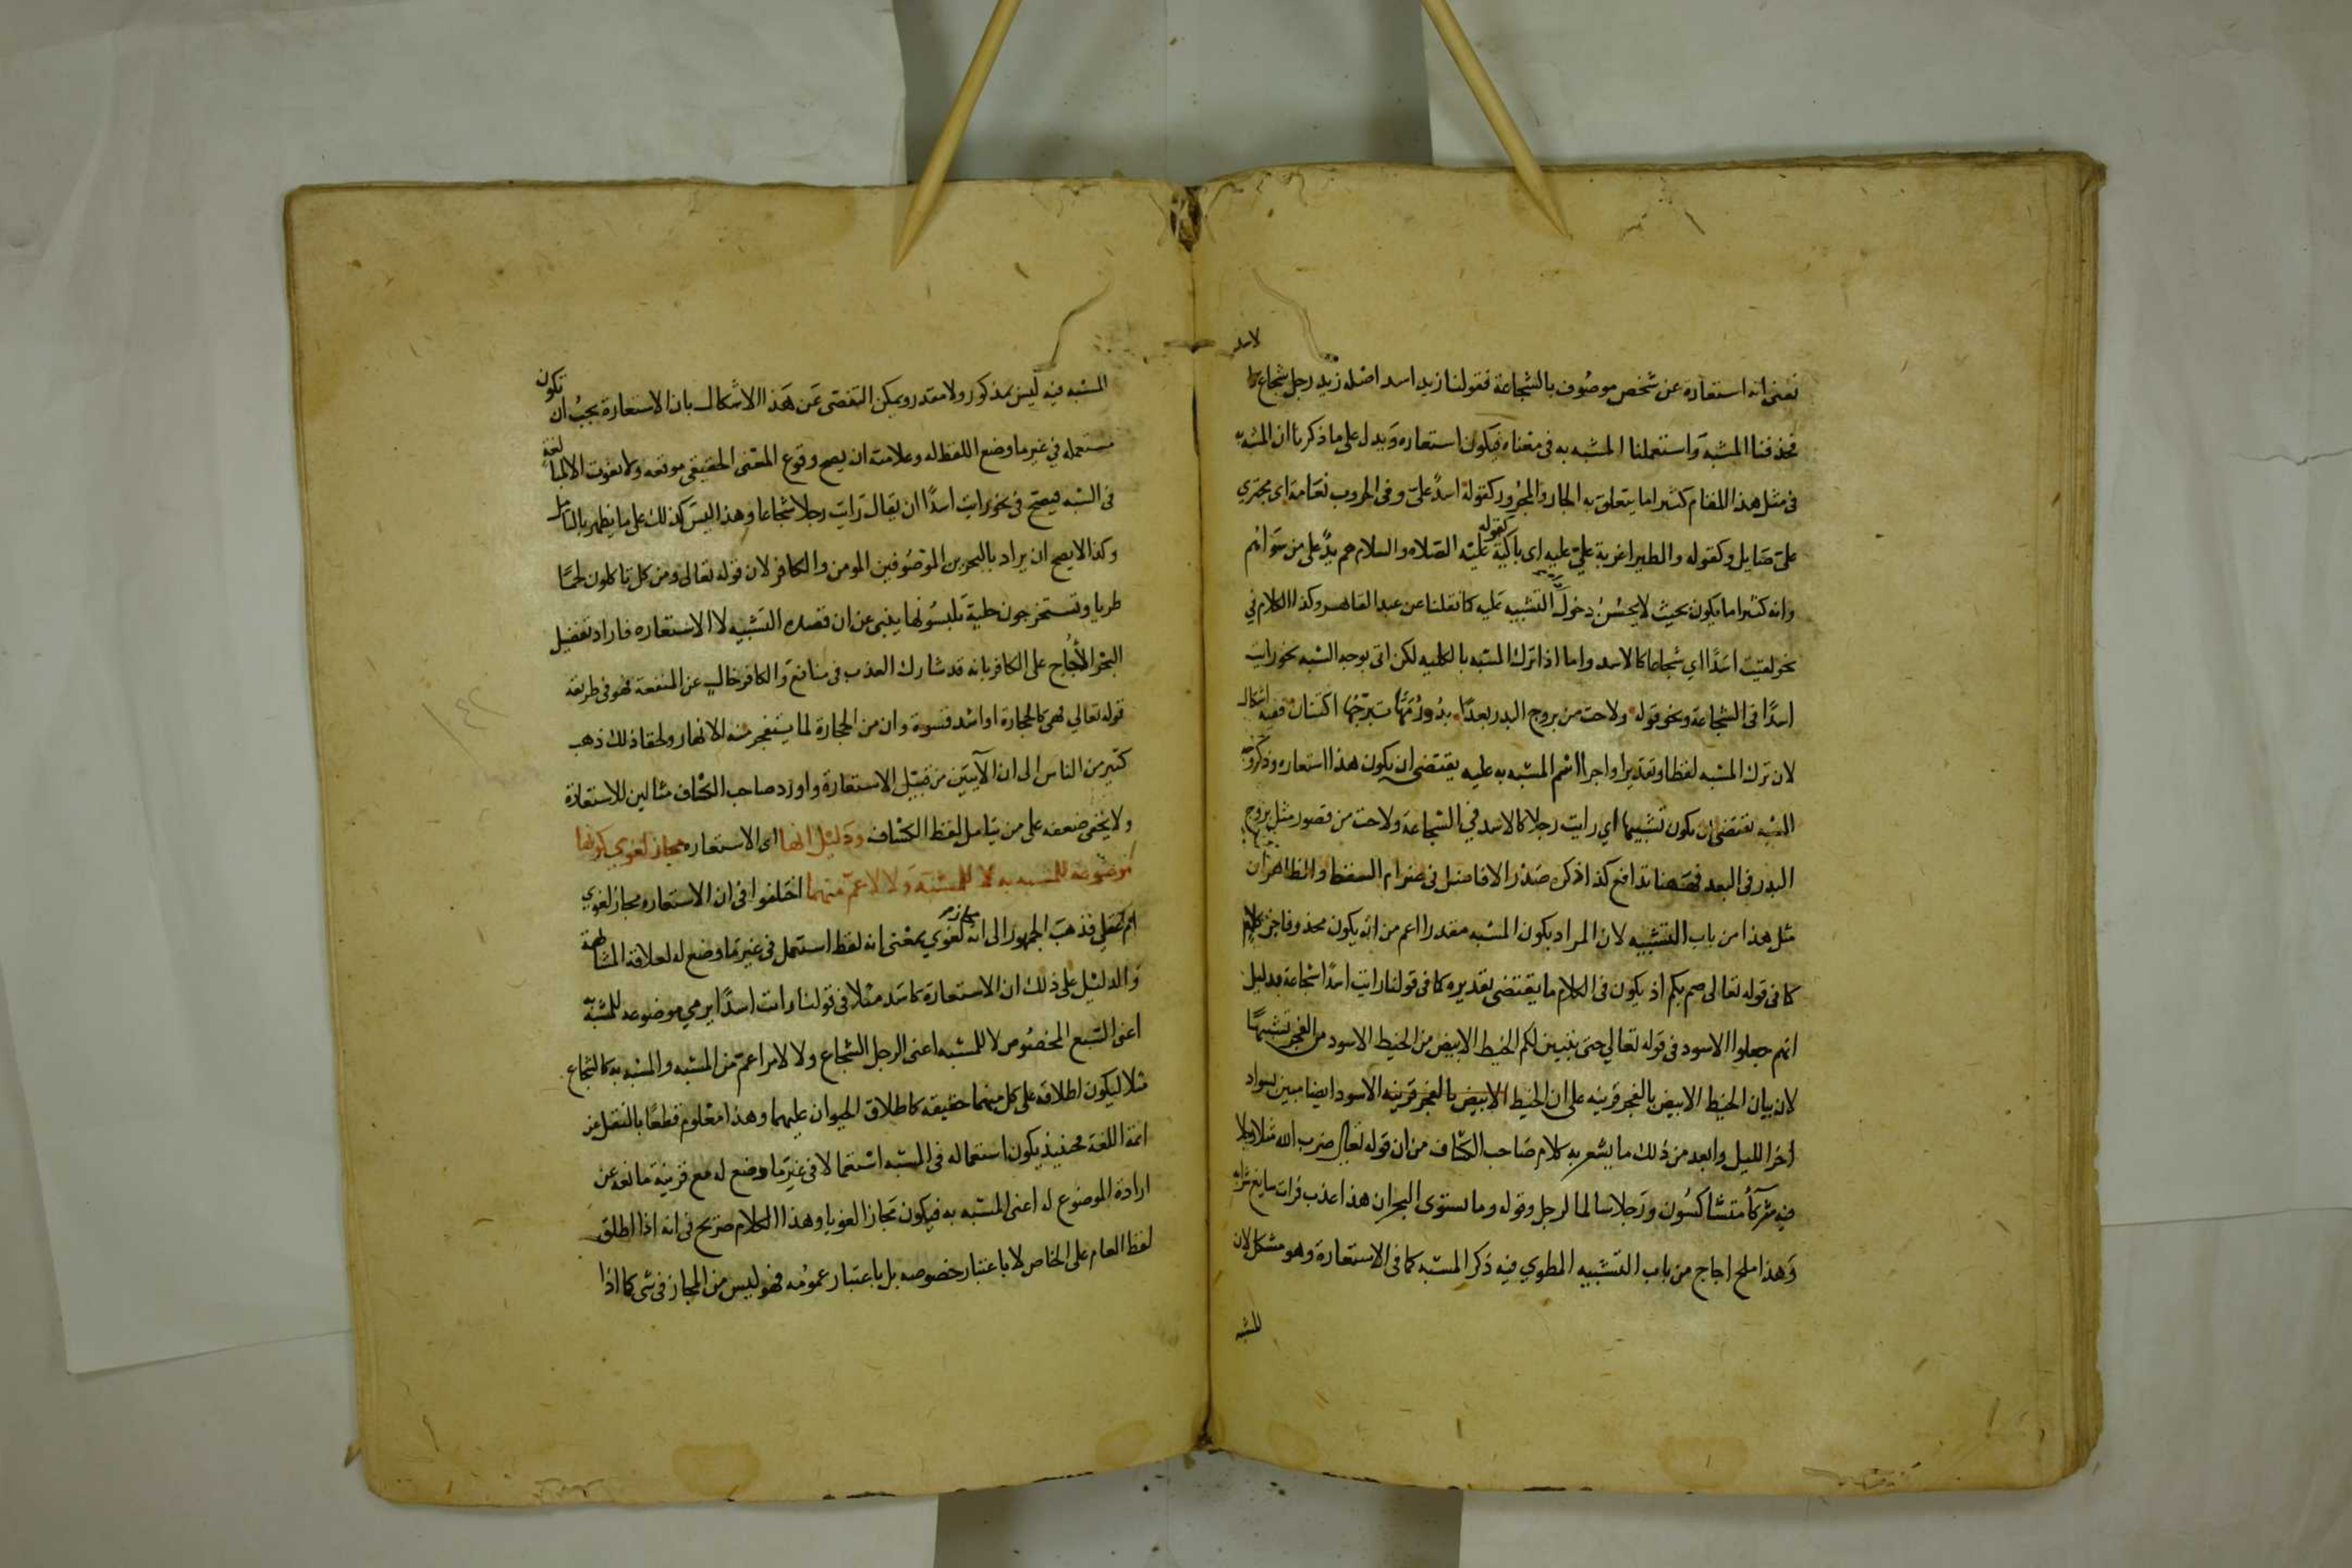 تعنى انه استعارة عن شخص موصوف بالشجاعة فقولنا زيد اسد اصله زيد رجل شجاع كالاسد
فحذفنا المشبه واستعملنا المشبه به فى معناه فيكون استعاره ويدل على ما ذكرنا ان المشبه به
فى مثل هذا المقام كثيرا ما يتعلق به الجار والمجرور كقوله اسد على وفى الحروب نعامة اى مجترى
على صايل وكقوله والطير اغربة على عليه اى باكية كقوله عليه الصلاه والسلام هم يد على من سواهم
وانه كثيرا ما يكون بحيث لا يحسن دخول التشبيه عليه كما نقلنا عن عبد القاهر وكذا الكلام في
نحو لقيت اسدا اي شجاعا كالاسد واما اذا ترك المشبه بالكليه لكن اتى بوجه الشبه نحو رايت
اسدا فى الشجاعة ونحو قوله ولاحت من بروج البدر بعدا بدور مها تبرجها اكتنان ففيه اشكال
لان ترك المشبه لفظا وتقديرا واجرا اسم المشبه به عليه يقتضى ان يكون هذا استعاره وذكر وجه
الشبه يقتضى ان يكون تشبيها اي رايت رجلا كالاسد في الشجاعة ولاحت من قصور مثل بروج
البدر فى البعد فبينهما تدافع كذا ذكره صدر الافاضل فى ضرام السقط والظاهر ان
مثل هذا من باب التشبيه لان المراد بكون المشبه مقدرا اعم من انه يكون محذوفا جزء كلام
كما فى قوله تعالى صم بكم او يكون فى الكلام ما يقتضى تقديره كما فى قولنا رايت اسدا شجاعة بدليل
انهم جعلوا الاسود فى قوله تعالي حتى يتبين لكم الخيط الابيض من الخيط الاسود من الفجر تشبيها
لان بيان الخيط الابيض بالفجر قرينه على ان الخيط الابيض بالفجر قرينه الاسود ايضا مبين بسواد
اخر الليل وابعد من ذلك ما يشعر به كلام صاحب الكشاف من ان قوله تعالى ضرب الله مثلا رجلا
فيه شركآ متشاكسون ورجلا سالما لرجل وقوله وما يستوى البحران هذا عذب فرات سايغ شرابه
وهذا ملح اجاج من باب التشبيه المطوي فيه ذكر المشبه كما فى الاستعارة وهو مشكل لان
المشبه
المشبه فيه ليس بمذكور ولا مقدر ويمكن التفصى عن هذا الاشكال بان الاستعارة يجب ان تكون
مستعمله في غير ما وضع اللفظ له وعلامته ان يصح وقوع المعنى الحقيقي موقعه ولا يفوت الا المبالغة
فى الشبه فيصح فى نحو رايت اسدا ان يقال رايت رجلا شجاعا وهذا ليس كذلك على ما يظهر بالتامل
وكذا لا يصح ان يراد بالبحرين الموصوفين المومن والكافر لان قوله تعالى ومن كل تاكلون لحما
طريا وتستخرجون حلية تلبسونها ينبي عن ان قصده التشبيه لا الاستعاره فاراد تفضيل
البحر الاجاج على الكافر بانه قد شارك العذب فى منافع والكافر خال عن المنفعة فهو فى طريقه
قوله تعالي فهى كالحجارة او اشد قسوة وان من الحجارة لما يتفجر منه الانهار ولخفا ذلك ذهب
كثير من الناس الى ان الآيتين من قبيل الاستعارة واورد صاحب الكشاف مثالين للاستعارة
ولا يخفى ضعفه على من يتامل لفظ الكشاف ودليل انها اى الاستعاره مجاز لغوي كونها
موضوعه للمشبه به لا للمشبه ولا لاعم منهما اختلفوا فى ان الاستعاره مجاز لغوي
ام عقلي فذهب الجمهور الى انه مجاز لغوي بمعنى انه لفظ استعمل فى غير ما وضع له لعلاقة المشابهة
والدليل على ذلك ان الاستعارة كاسد مثلا فى قولنا رايت اسدا يرمي موضوعه للمشبه به
اعنى السبع المخصوص لا للمشبه اعنى الرجل الشجاع ولا لامر اعم من المشبه والمشبه به كالشجاع
مثلا ليكون اطلاقه على كل منهما حقيقه كاطلاق الحيوان عليهما وهذا معلوم قطعا بالنقل عن
ائمة اللغة فحينيذ يكون استعماله فى المشبه استعمالا فى غير ما وضع له مع قرينة مانعه عن
ارادة الموضوع له اعنى المشبه به فيكون مجازا لغويا وهذا الكلام صريح فى انه اذا اطلق
لفظ العام على الخاص لا باعتبار خصوصه بل باعتبار عمومه فهو ليس من المجاز فى شى كما اذا